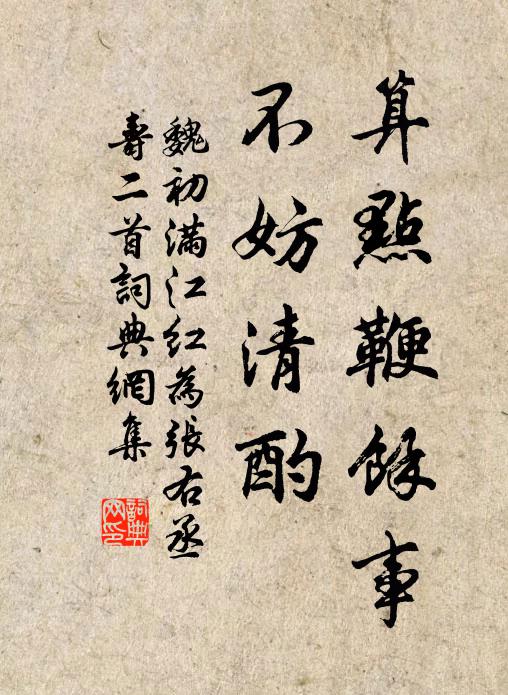 算點鞭餘事
不妨清酌
魏初滿江紅為張右丞
壽二首詞典網集
詞典
网印